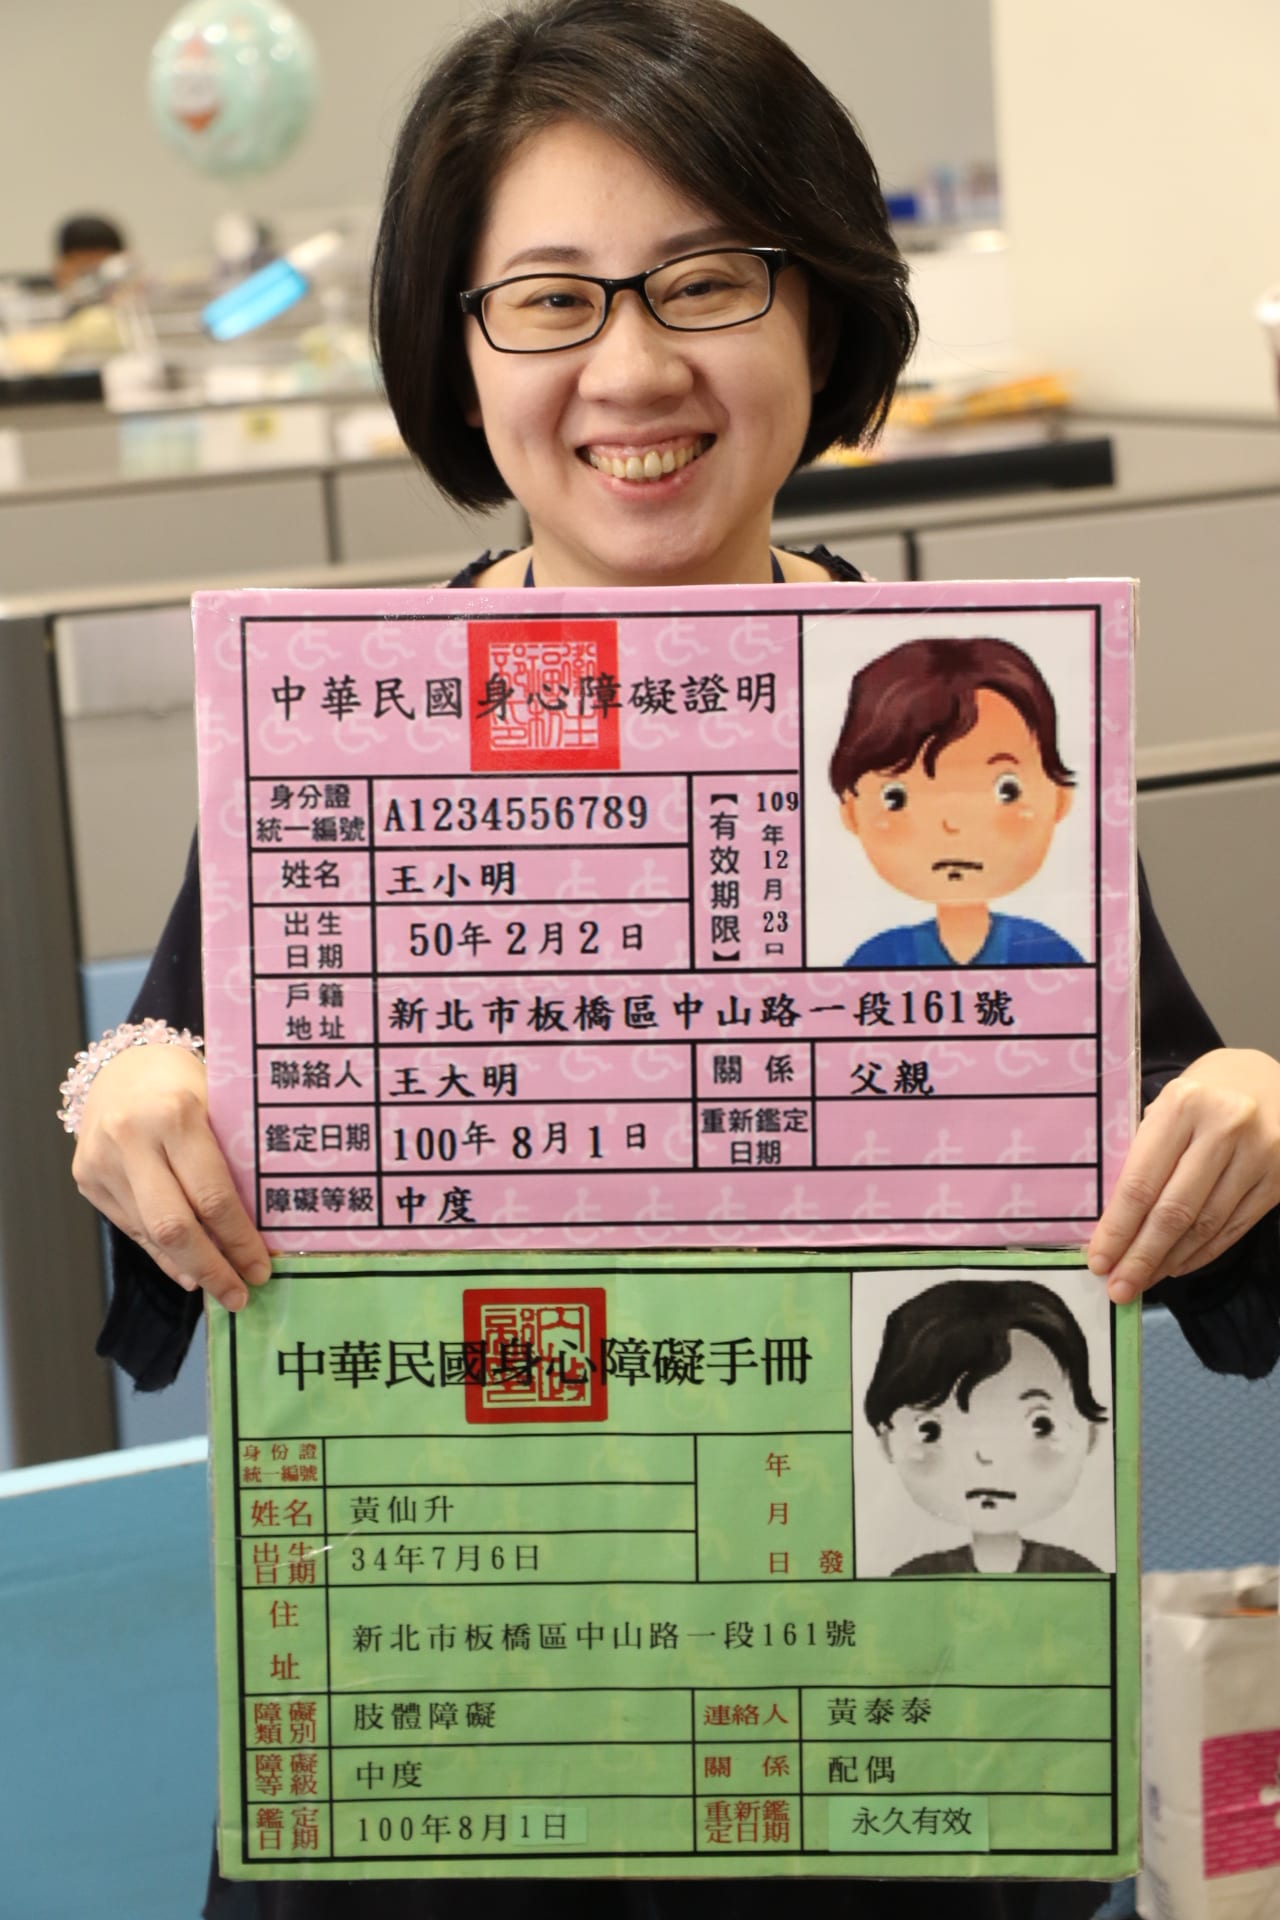 中華民國身心障礙證明
身分證
統一編號
A1234556789
【有效期限】
109
年
12
月
23
日
姓名
王小明
出生
日期
50年2月2日
戶籍
地址
新北市板橋區中山路一段161號
聯絡人
王大明
關係
父親
鑑定日期
100年8月1日
重新鑑定
日期
障礙等級
中度
中華民國身心障礙手冊
身份證
統一編號
年
月
日發
姓名
黃仙升
出生
日期
34年7月6日
住
址
新北市板橋區中山路一段161號
障礙
類別
肢體障礙
連絡人
黃泰泰
障礙
等級
中度
關係
配偶
鑑定
日期
100年8月1日
重新鑑
定日期
永久有效